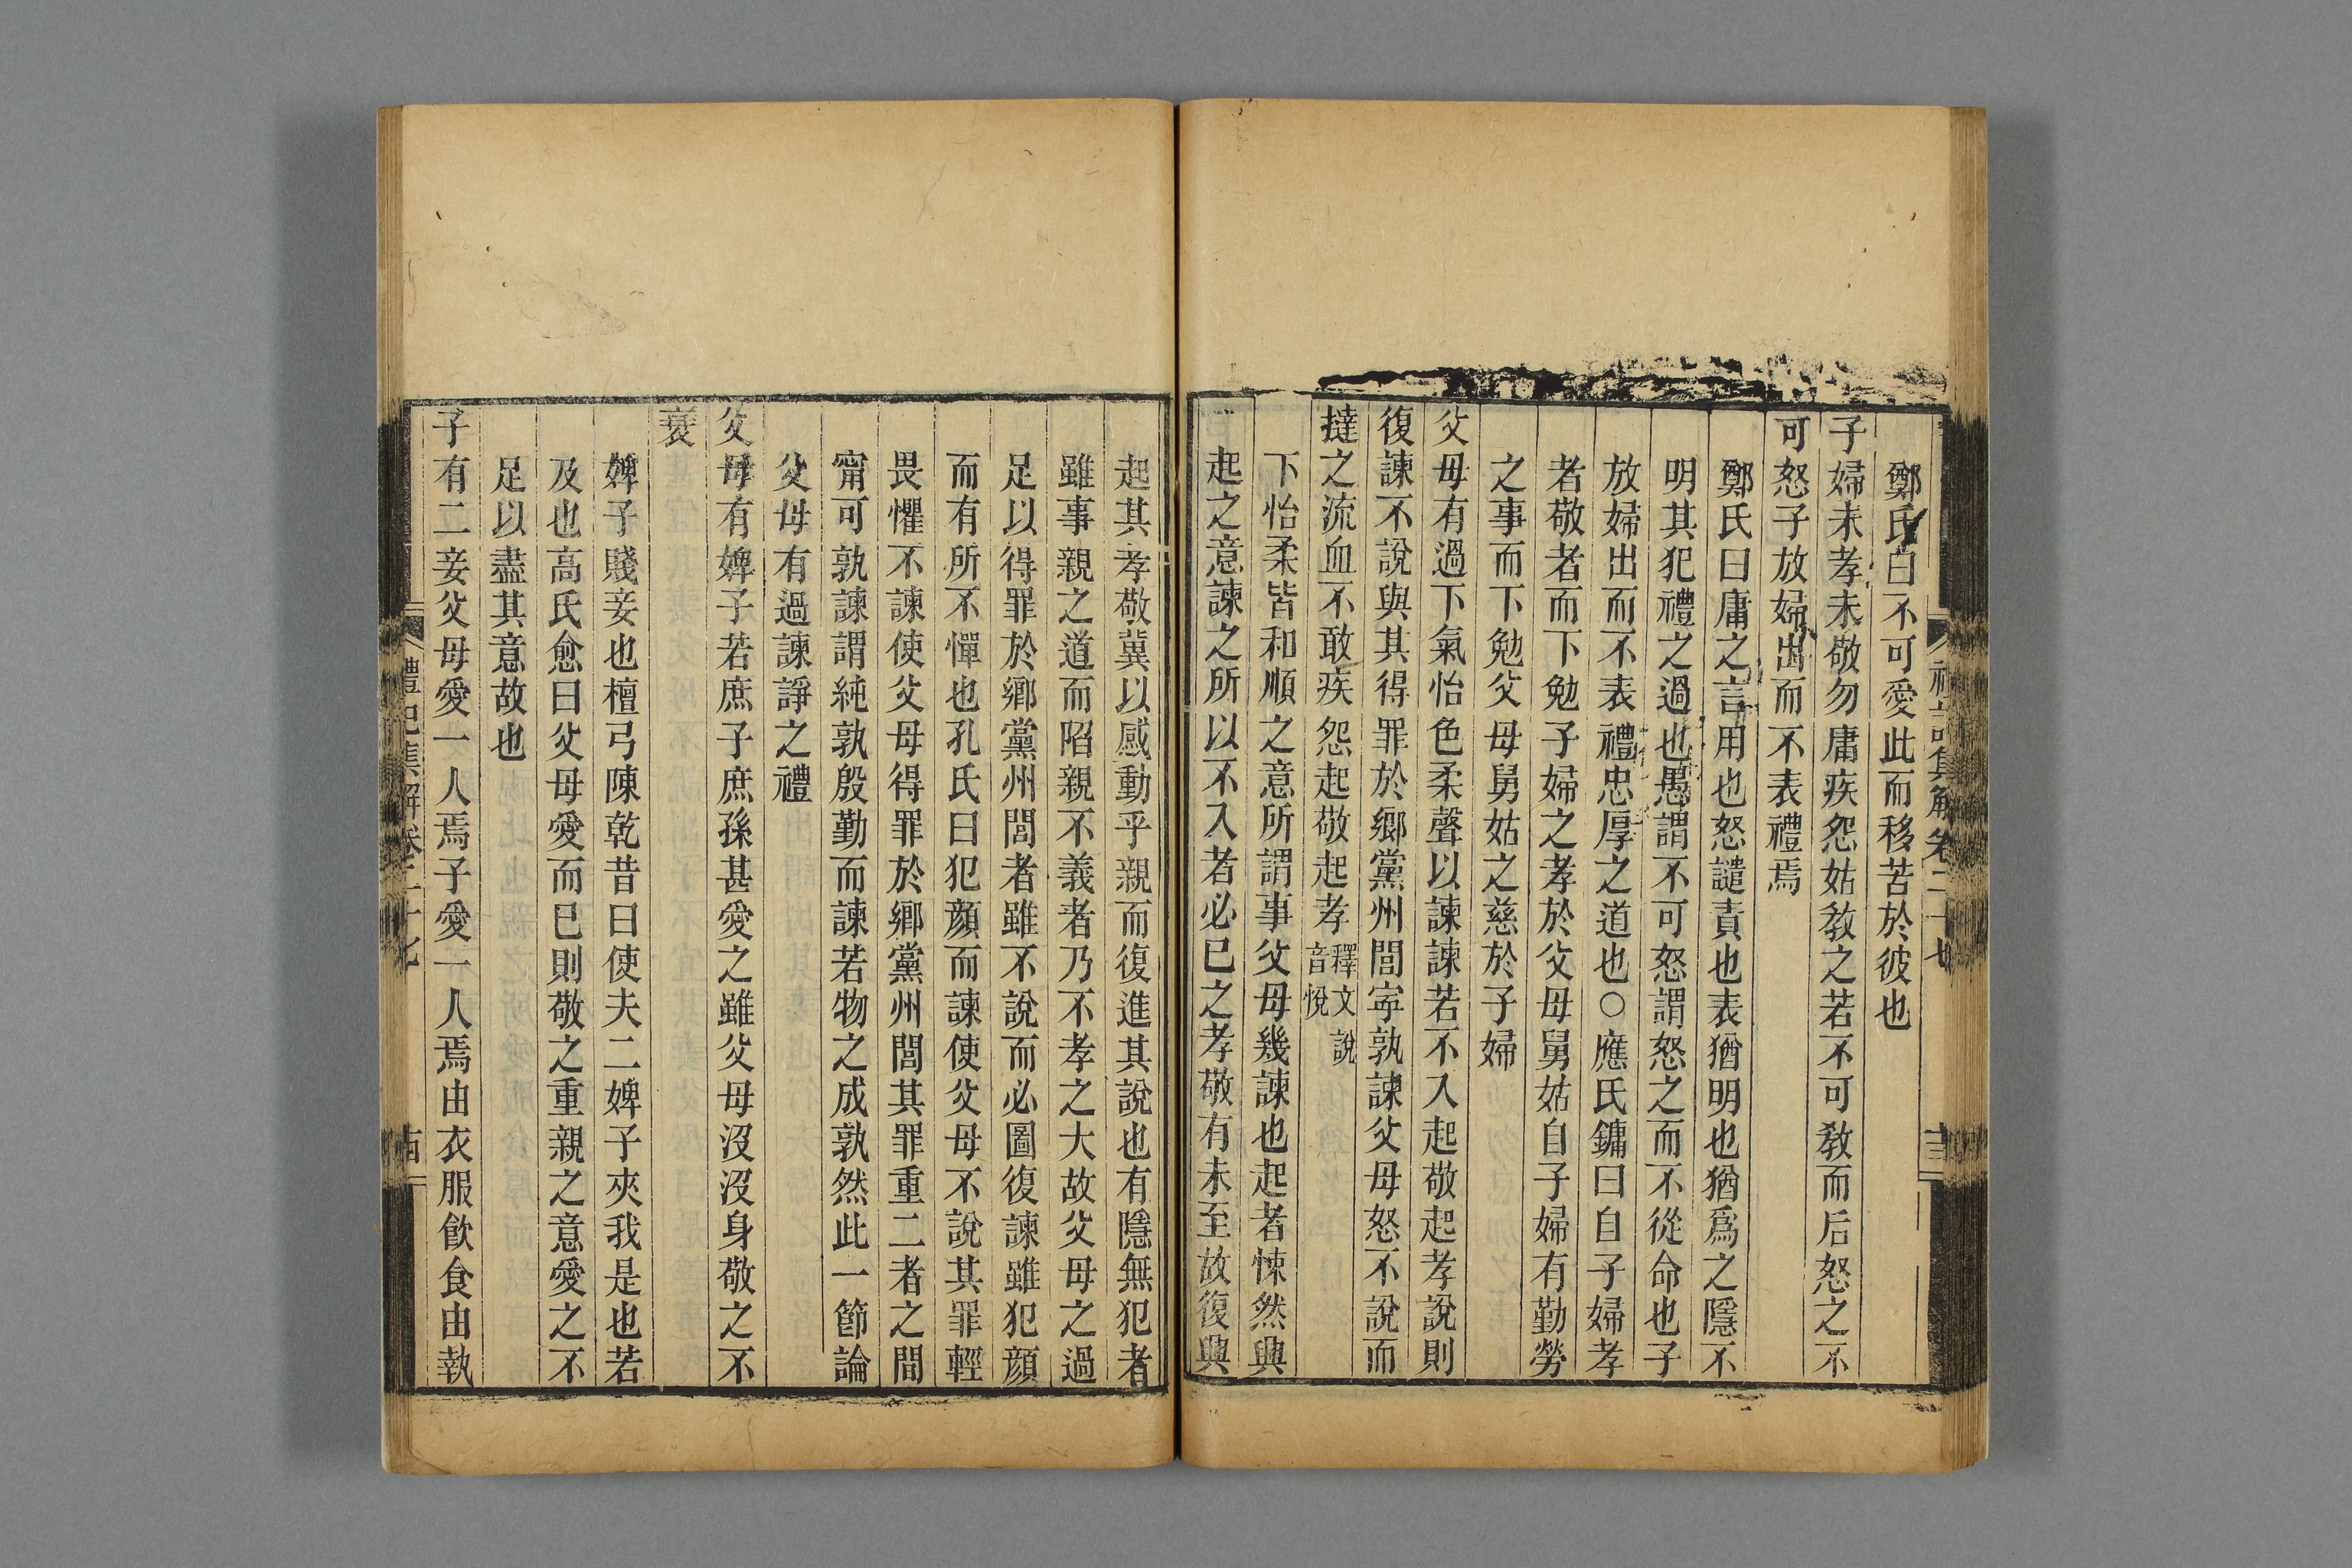 鄭氏曰不可愛此而移苦於彼也
子婦未孝未敬勿庸疾怨姑敎之若不可敎而后怒之不
可怒子放婦出而不表禮焉
鄭氏曰庸之言用也怒譴責也表猶明也猶爲之隱不
明其犯禮之過也愚謂不可怒謂怒之而不從命也子
放婦出而不表禮忠厚之道也○應氏鏞曰自子婦孝
者敬者而下勉子婦之孝於父母舅姑自子婦有勤勞
之事而下勉父母舅姑之慈於子婦
父母有過下氣怡色柔聲以諫諫若不入起敬起孝說則
復諫不說與其得罪於鄉黨州閭寧孰諫父母怒不說而
撻之流血不敢疾怨起敬起孝釋文說音悅
下怡柔皆和順之意所謂事父母幾諫也起者悚然興
起之意諫之所以不入者必己之孝敬有未至故復興
起其孝敬冀以感動乎親而復進其說也有隱無犯者
雖事親之道而陷親不義者乃不孝之大故父母之過
足以得罪於鄉黨州閭者雖不說而必圖復諫雖犯顔
而有所不憚也孔氏曰犯顔而諫使父母不說其罪輕
畏懼不諫使父母得罪於鄉黨州閭其罪重二者之間
甯可孰諫謂純孰殷勤而諫若物之成孰然此一節論
父母有過諫諍之禮
父母有婢子若庶子庶孫甚愛之雖父母沒沒身敬之不
衰
婢子賤妾也檀弓陳乾昔曰使夫二婢子夾我是也若
及也高氏愈曰父母愛而已則敬之重親之意愛之不
足以盡其意故也
子有二妾父母愛一人焉子愛一人焉由衣服飮食由執
禮記集解卷二十七